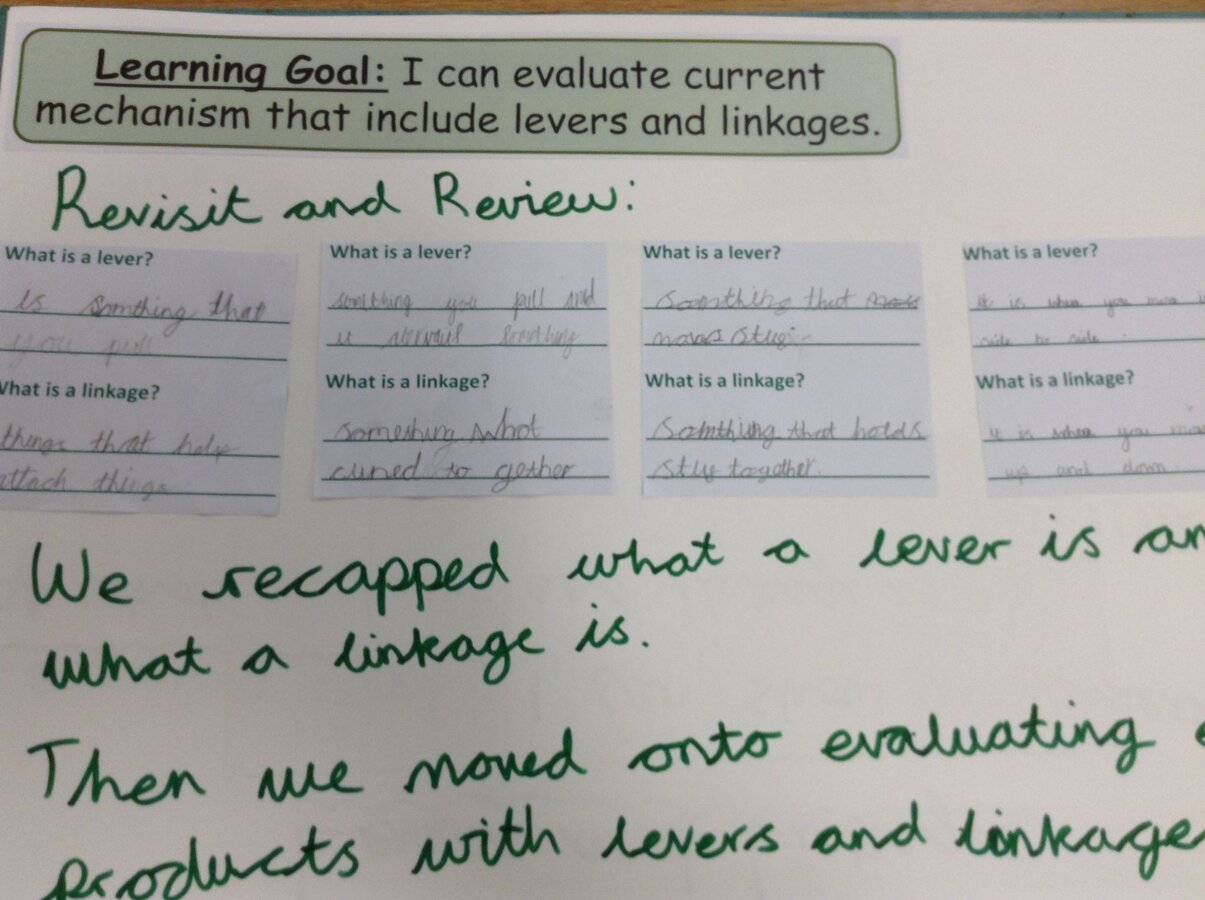 Learning Goal: I can evaluate current
mechanism that include levers and linkages.
Revisit and Review:
What is a lever?
is somthing that
you pull
What is a linkage?
things that help
attach things
What is a lever?
something you pull and
it somthing
What is a linkage?
someshing whot
to gesher
What is a lever?
somthing that
movs
What is a linkage?
Somthing that holds
together.
What is a lever?
it is when you move
side to side.
What is a linkage?
it is when you move
up and down.
We recapped what a lever is an
what a linkage is.
Then we moved onto evaluating
products with levers and linkage